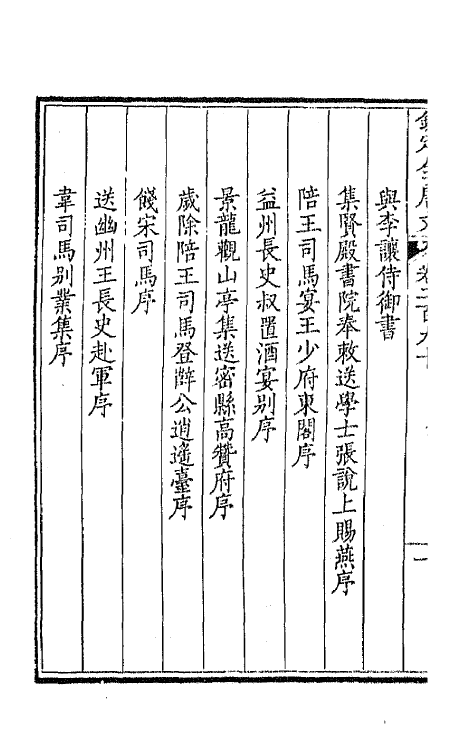 欽定全唐文 卷二百九十 一
與李讓侍御書
集賢殿書院奉敕送學士張說上賜燕序
陪王司馬宴王少府東閣序
益州長史叔置酒宴別序
景龍觀山亭集送密縣高贊府序
歲除陪王司馬登薛公逍遙臺序
餞宋司馬序
送幽州王長史赴軍序
韋司馬別業集序